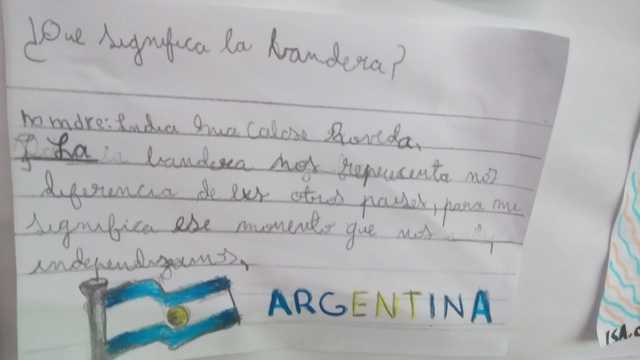 ¿Que significa la bandera?
nombre: India
La bandera nos representa nos
diferencia de los otros paises, para mi
significa ese momento que nos
independizamos.
ARGENTINA
ISA.